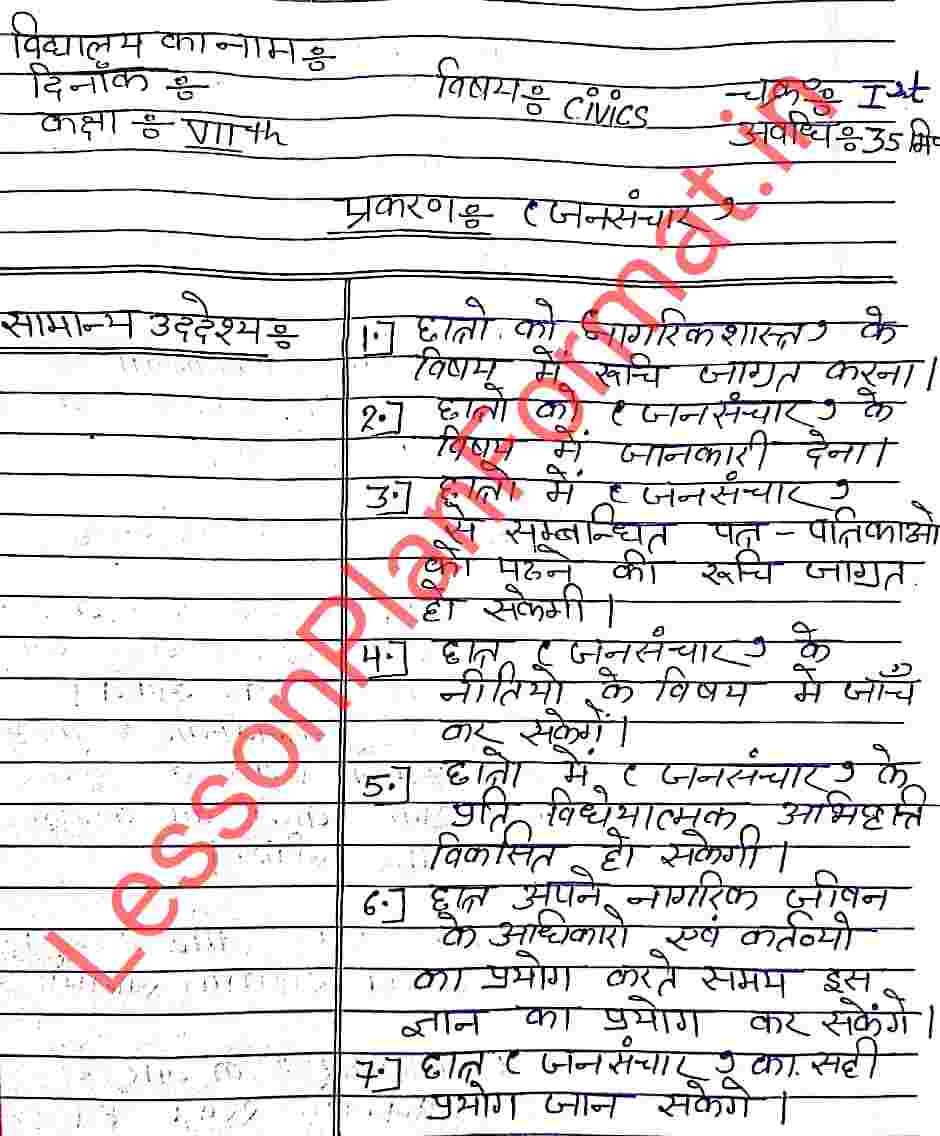 विद्यालय का नाम ः
दिनाँक ः
विषय ः CIVICS
चक्र ः Ist
कक्षा ः VIIth
अवधि ः 35 मि
प्रकरण ः ‘जनसंचार’
सामान्य उद्देश्य ः
1.] छात्रो को नागरिकशास्त्र’ के
विषय में रूचि जाग्रत करना।
2.] छात्रो को ‘जनसंचार’ के
विषय में जानकारी देना।
3.] छात्रो में ‘जनसंचार’
से सम्बन्धित पत्र – पत्रिकाओ
को पढने की रूचि जाग्रत
हो सकेगी।
4.] छात्र ‘जनसंचार’ के
नीतियो के विषय मे जाँच
कर सकेगें।
5.] छात्रो में ‘जनसंचार’ के
प्रति विधेयात्मक अभिवृत्ति
विकसित हो सकेगी।
6.] छात्र अपने नागरिक जीवन
के अधिकारो एवं कर्तव्यो
का प्रयोग करते समय इस
ज्ञान का प्रयोग कर सकेंगे।
7.] छात्र ‘जनसंचार’ का सही
प्रयोग जान सकेगे।
LessonPlanFormat.in